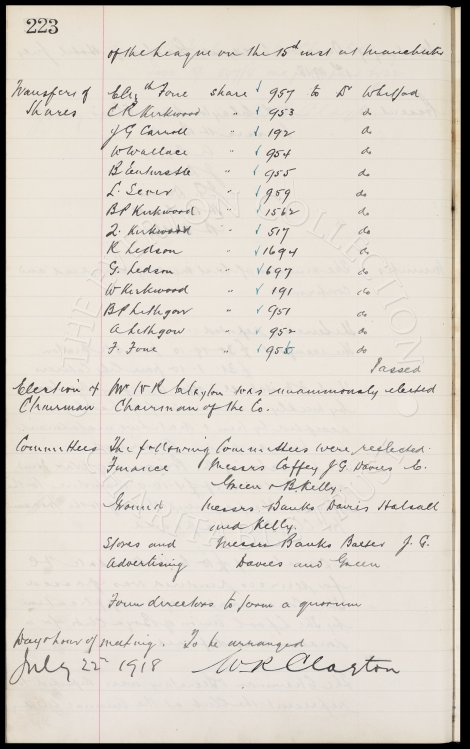 223
of the League on the 15th inst at Manchester
Transfers of Shares
Elizth Fone share 957 to Dr Whitford
C R Kirkwood " 953 do
J G Carroll " 192 do
W Wallace " 954 do
B Entwistle " 955 do
L. Sever " 959 do
B P Kirkwood " 1562 do
J. Kirkwood " 517 do
R Ledson " 1694 do
G. Ledson " 697 do
W Kirkwood " 191 do
B P Lithgow " 951 do
A Lithgow " 952 do
F. Fone " 956 do
Passed
Election of Chairman
Mr W R Clayton was unanimously elected
Chairman of the Co.
Committees
The following Committees were reelected.
Finance Messrs Coffey J. G. Davies C.
Green & B Kelly.
Ground Messrs Banks Davis Halsall
and Kelly.
Stores and Messrs Banks Baxter J. G.
Advertising Davies and Green
Four directors to form a quorum
Day & hour of meeting. To be arranged
July 22nd 1918 W R Clayton